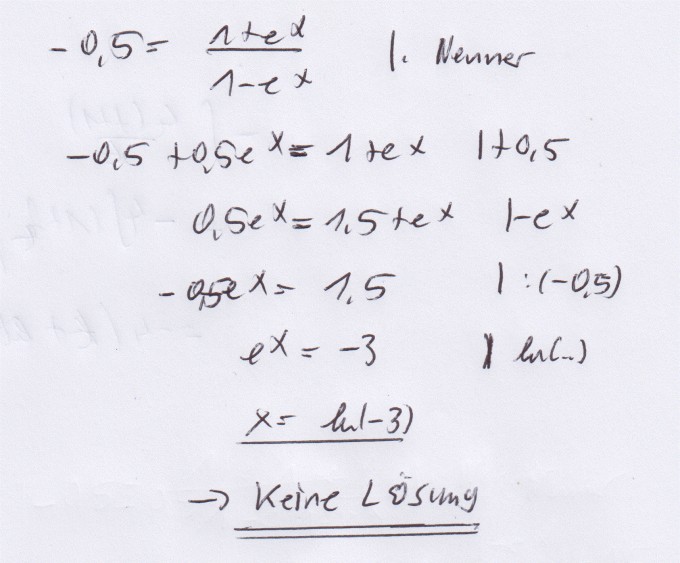 -0,5 = (1+e^x)/(1-e^x) |· Nenner
-0,5 +0,5e^x = 1+e^x |+0,5
0,5e^x = 1,5+e^x |-e^x
-0,5e^x = 1,5 | :(-0,5)
e^x = -3 | ln(..)
x = ln(-3)
→ Keine Lösung